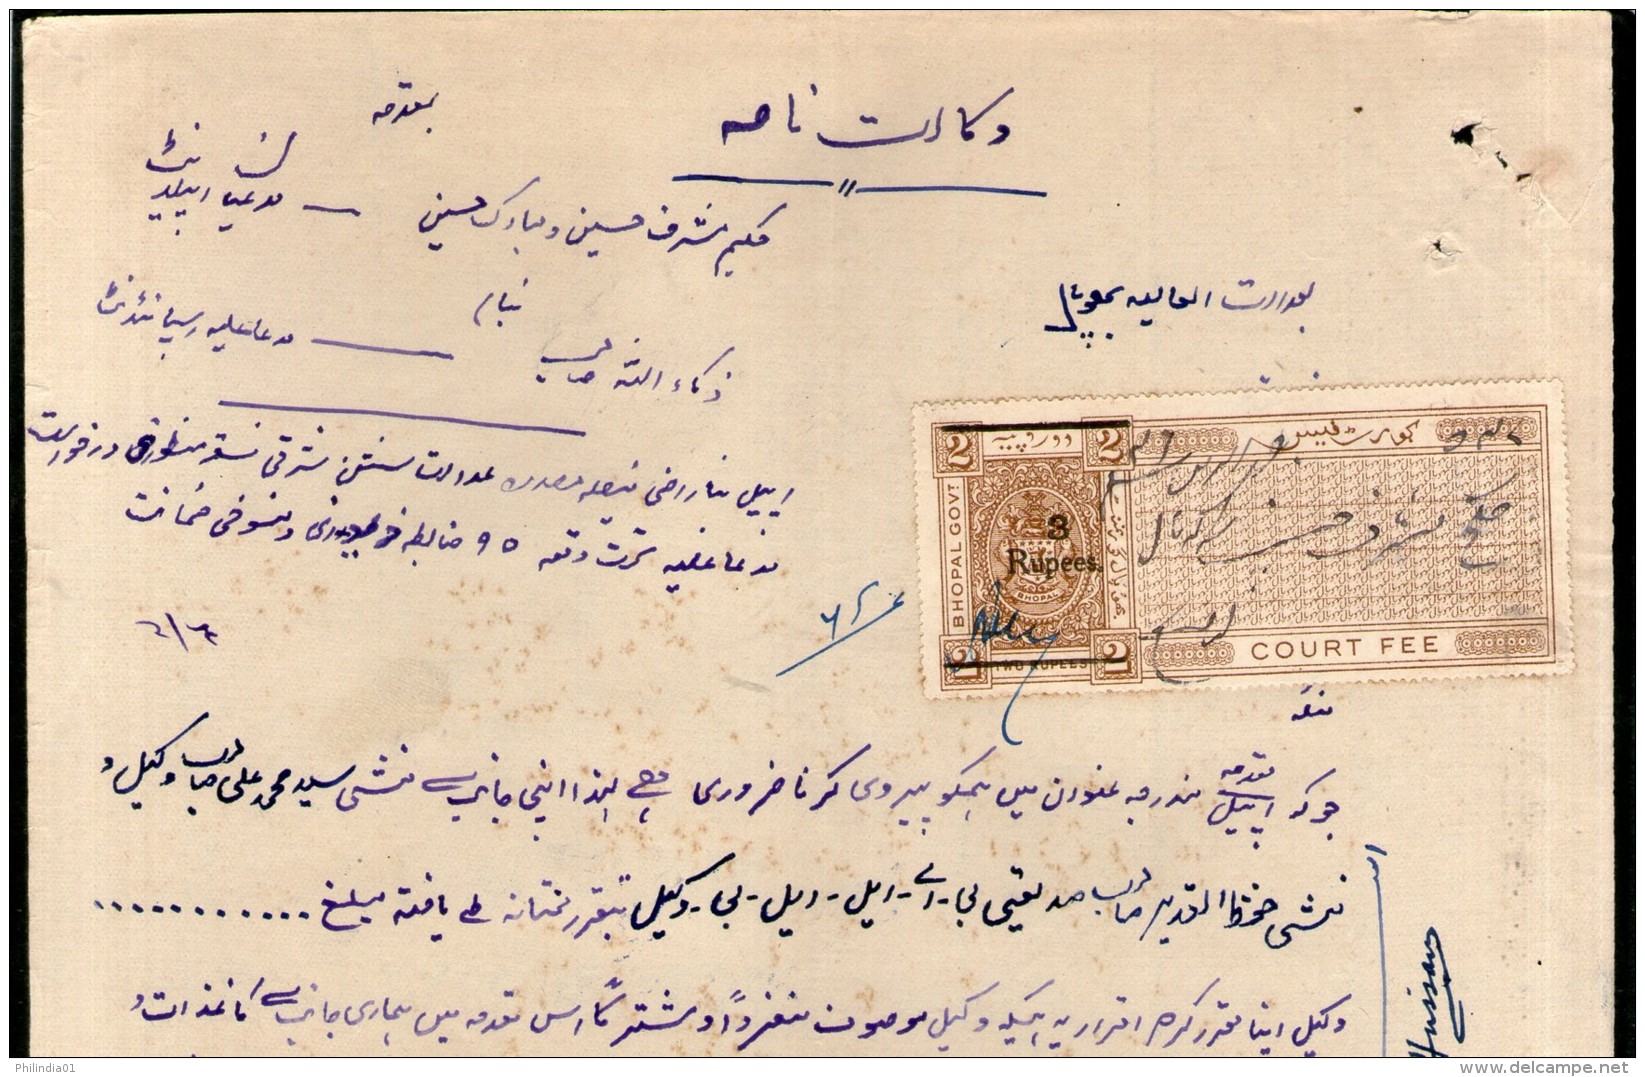 وکالت نامہ
بمقدمہ
حکیم مشرف حسین و مبارک حسین — مدعیان اپیلانٹ
بعدالت العالیہ بھوپال
بنام
ذکاء اللہ خاں — مدعاعلیہ رسپانڈنٹ
اپیل بناراضی فیصلہ مصدرہ عدالت سشن شرقی نسبت منظوری درخواست
مدعاعلیہ تحت دفعہ ۹۵ ضابطہ دیوانی و منسوخی ضمانت
کورٹ فیس
2 دو روپیہ 2
BHOPAL GOVT
3
Rupees.
BHOPAL
2 TWO RUPEES 2
COURT FEE
جو کہ مقدمہ اپیل مندرجہ عنوان میں ہمکو پیروی کرنا ضروری ہے لہذا اپنی جانب سے منشی سید محمد علی صاحب وکیل و
منشی حفیظ القدیر صاحب صدیقی بی - اے - ایل - ایل - بی - وکیل بتقرر محنتانہ طے یافتہ مبلغ . . . . . . . . . . . .
وکیل اپنا مقرر کرکے اقرار یہ ہیکہ وکیل موصوف منفرداً و مشترکاً اس مقدمہ میں ہماری جانب سے کاغذات و
Hussain
Philindia01
©delcampe.net